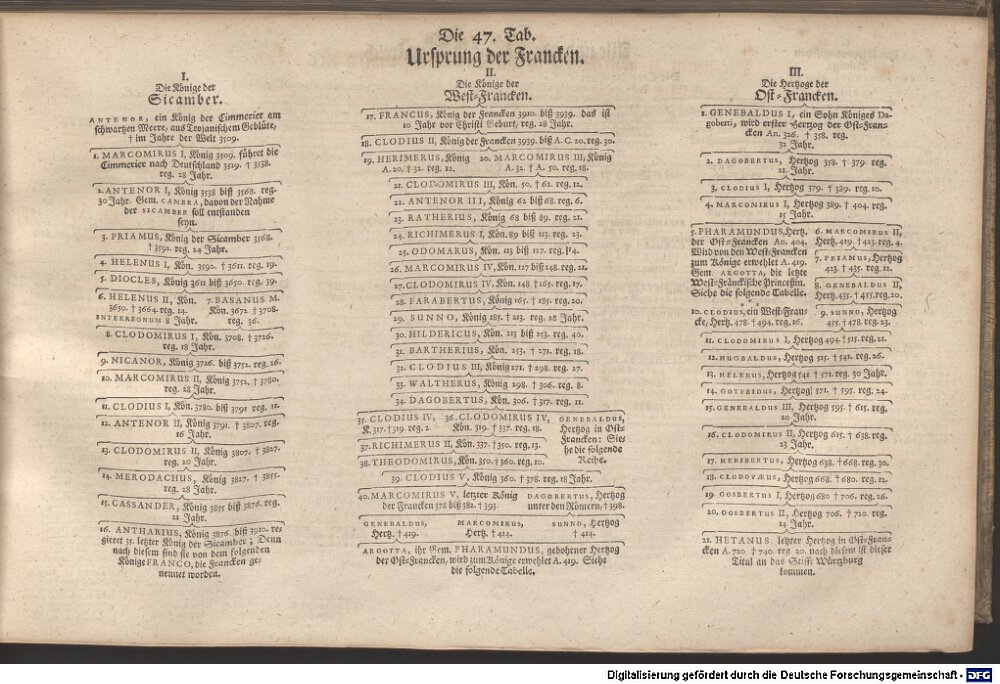 Die 47. Tab.
Ursprung der Francken.
I.
Die Könige der
Sicamber.
ANTENOR, ein König der Cimmerier am
schwartzen Meere, aus Trojanischem Geblüte,
† im Jahre der Welt 3509.
1. MARCOMIRUS I, König 3509. führet die
Cimmerier nach Deutschland 3519. † 3538.
reg. 28 Jahr.
2. ANTENOR I, König 3538 biß 3568. reg.
30 Jahr. Gem. CAMBRA, davon der Nahme
der SICAMBER soll entstanden
seyn.
3. PRIAMUS, König der Sicamber 3568.
† 3592. reg. 24 Jahr.
4. HELENUS I, Kön. 3592. † 3611. reg. 19.
5. DIOCLES, König 3611 biß 3650. reg. 39.
6. HELENUS II, Kön. 7. BASANUS M.
3650. † 3664. reg. 14. Kön. 3672 † 3708.
INTERREGNUM 8 Jahr. reg. 36.
8. CLODOMIRUS I, Kön. 3708. † 3726.
reg. 18 Jahr.
9. NICANOR, König 3726. biß 3752. reg. 26.
10. MARCOMIRUS II, König 3752. † 3780.
reg. 28 Jahr.
11. CLODIUS I, Kön. 3780. biß 3791 reg. 11.
12. ANTENOR II, König 3791. † 3807. reg.
16 Jahr.
13. CLODOMIRUS II, König 3807. † 3827.
reg. 20 Jahr.
14. MERODACHUS, König 3827. † 3855.
reg. 28 Jahr.
15. CASSANDER, König 3855 biß 3876. reg.
21 Jahr.
16. ANTHARIUS, König 3876. biß 3910. re=
gieret 35. letzter König der Sicamber; Denn
nach diesem sind sie von dem folgenden
Könige FRANCO, die Francken ge=
nennet worden.
II.
Die Könige der
West=Francken.
17. FRANCUS, König der Francken 3910. biß 3939. das ist
10 Jahr vor Christi Geburt, reg. 28 Jahr.
18. CLODIUS II, König der Francken 3939. biß A. C. 20. reg. 30.
19. HERIMERUS, König 20. MARCOMIRUS III, König
A. 20. † 32. reg. 12. A. 32. † A. 50. reg. 18.
21. CLODOMIRUS III, Kön. 50. † 62. reg. 12.
22. ANTENOR III, König 62 biß 68. reg. 6.
23. RATHERIUS, König 68 biß 89. reg. 21.
24. RICHIMERUS I, Kön. 89 biß 113. reg. 23.
25. ODOMARUS, Kön. 113 biß 127. reg. 14.
26. MARCOMIRUS IV, Kön. 127 biß 148. reg. 21.
27. CLODOMIRUS IV, Kön. 148 † 165. reg. 17.
28. FARABERTUS, König 165. † 185. reg. 20.
29. SUNNO, König 185. † 213. reg. 28 Jahr.
30. HILDERICUS, Kön. 213 biß 253. reg. 40.
31. BARTHERIUS, Kön. 253. † 271. reg. 18.
32. CLODIUS III, König 271. † 298. reg. 27.
33. WALTHERUS, König 298. † 306. reg. 8.
34. DAGOBERTUS, Kön. 306. † 317. reg. 11.
35. CLODIUS IV, 36. CLODOMIRUS IV, GENEBALDUS,
K. 317. † 319. reg. 2. Kön. 319. † 337. reg. 18. Hertzog in Ost=
Francken: Sie=
he die folgende
Reihe.
37. RICHIMERUS II, Kön. 337. † 350. reg. 13.
38. THEODOMIRUS, Kön. 350. † 360. reg. 10.
39. CLODIUS V, König 360. † 378. reg. 18 Jahr.
40. MARCOMIRUS V, letzter König DAGOBERTUS, Hertzog
der Francken 378 biß 382. † 393. unter den Römern, † 398.
GENEBALDUS, MARCOMIRUS, SUNNO, Hertzog
Hertz. † 419. Hertz. † 414. † 424.
ARGOTTA, ihr Gem. PHARAMUNDUS, gebohrner Hertzog
der Ost=Francken, wird zum Könige erwehlet A. 419. Siehe
die folgende Tabelle.
III.
Die Hertzoge der
Ost=Francken.
1. GENEBALDUS I, ein Sohn Königes Da=
goberti, wird erster Hertzog der Ost=Fran=
cken An. 326. † 358. reg.
32 Jahr.
2. DAGOBERTUS, Hertzog 358. † 379. reg.
3. CLODIUS I, Hertzog 379. † 389. reg. 10.
4. MARCOMIRUS I, Hertzog 389. † 404. reg.
15 Jahr.
5. PHARAMUNDUS, Hertz.
der Ost=Francken An. 404.
Wird von den West=Francken
zum Könige erwehlet A. 419.
Gem. ARGOTTA, die letzte
West=Fränckische Princeßin.
Siehe die folgende Tabelle.
6. MARCOMIRUS II,
Hertz. 419. † 423. reg. 4.
7. PRIAMUS, Hertzog
423. † 435. reg. 12.
8. GENEBALDUS II,
Hertz. 435. † 455. reg. 20.
10. CLODIUS, ein West=Fran=
cke, Hertz. 478. † 494. reg. 16.
9. SUNNO, Hertzog
455. † 478 reg. 23.
11. CLODOMIRUS I, Hertzog 494. † 515. reg. 21.
12. HUGBALDUS, Hertzog 515. † 541. reg. 26.
13. HELENUS, Hertzog 541 † 571. reg. 30 Jahr.
14. GOTFRIDUS, Hertzog 571. † 595. reg. 24.
15. GENEBALDUS III, Hertzog 595. † 615. reg.
20 Jahr.
16. CLODOMIRUS II, Hertzog 615. † 638. reg.
23 Jahr.
17. HERIBERTUS, Hertzog 638. † 668. reg. 30.
18. CLODOVÆUS, Hertzog 668. † 680. reg. 12.
19. GOSBERTUS I, Hertzog 680 † 706. reg. 26.
20. GOSBERTUS II, Hertzog 706. † 720. reg.
14 Jahr.
21. HETANUS, letzter Hertzog in Ost=Fran=
cken A. 720. † 740. reg. 20. nach diesem ist dieser
Titul an das Stifft Würtzburg
kommen.
Digitalisierung gefördert durch die Deutsche Forschungsgemeinschaft - DFG